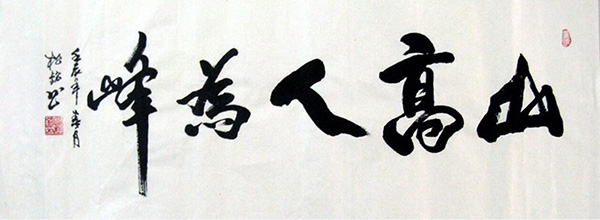 山高人為峰
壬辰年春月